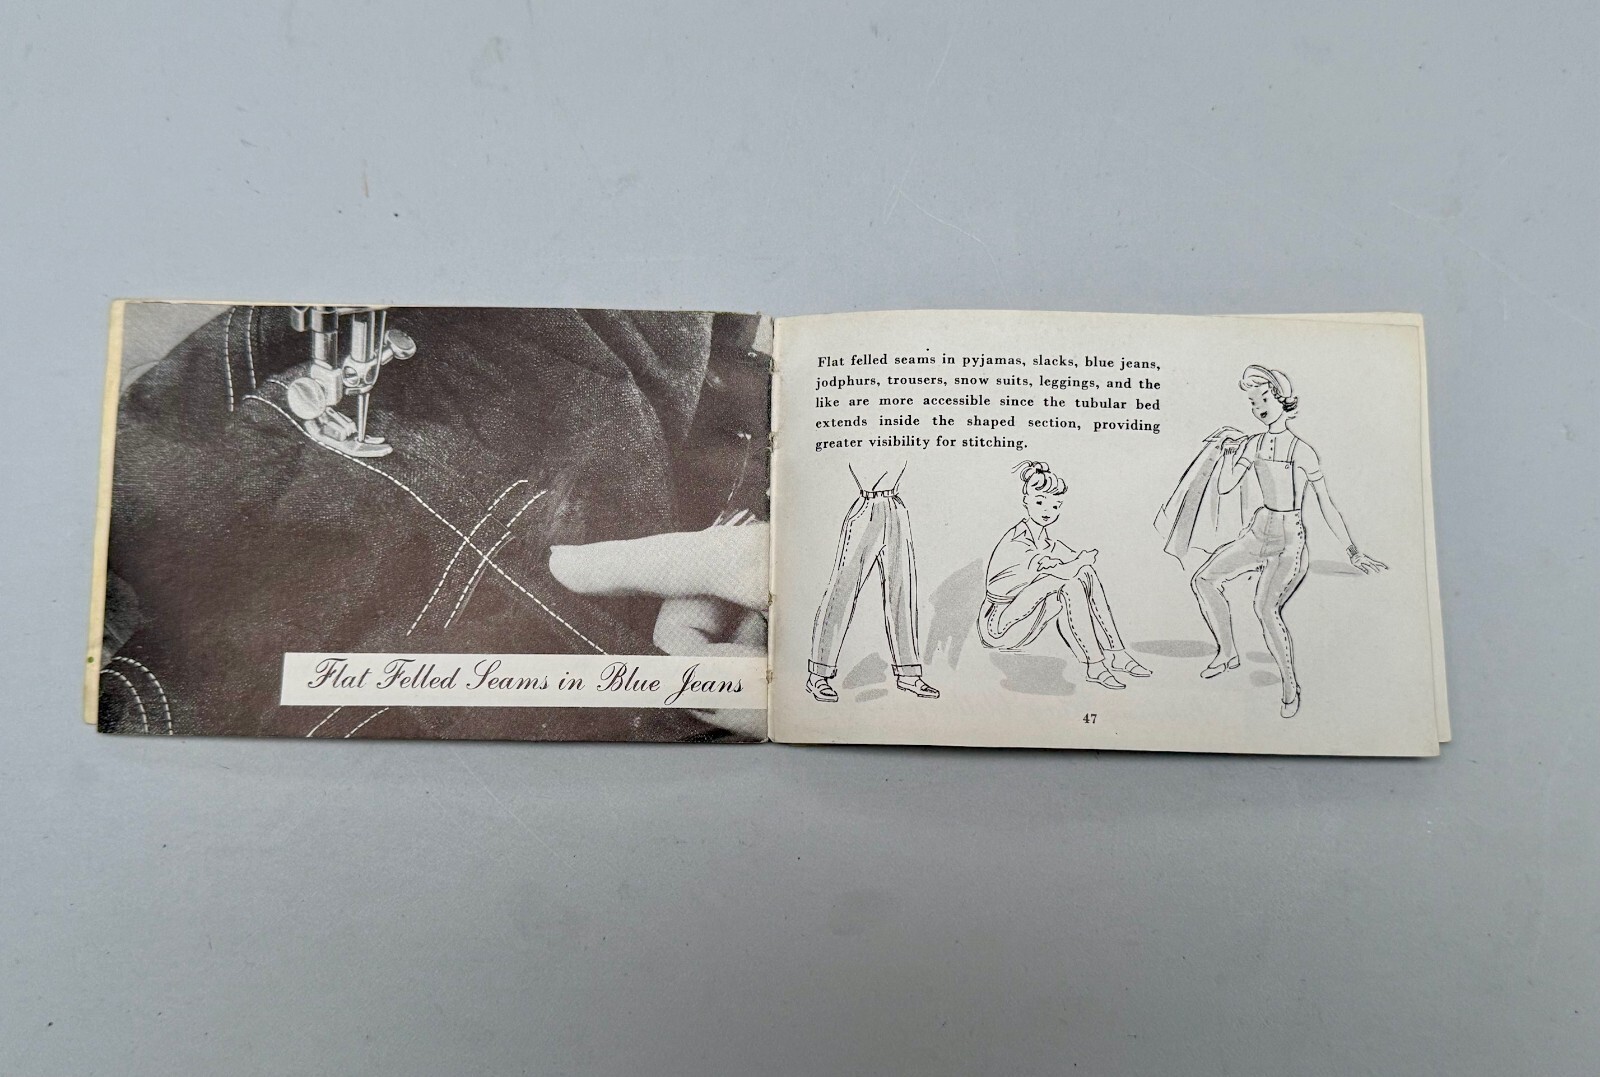 Flat Felled Seams in Blue Jeans
Flat felled seams in pyjamas, slacks, blue jeans,
jodphurs, trousers, snow suits, leggings, and the
like are more accessible since the tubular bed
extends inside the shaped section, providing
greater visibility for stitching.
47